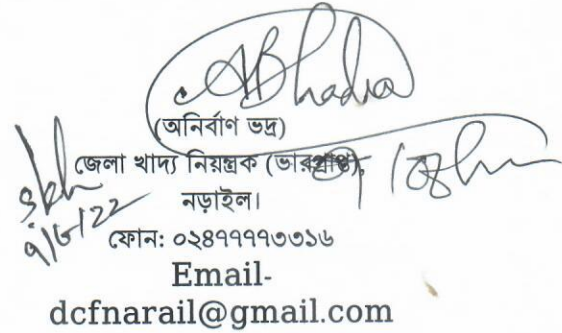 ABhadra
(অনির্বাণ ভদ্র)
জেলা খাদ্য নিয়ন্ত্রক (ভারপ্রাপ্ত),
নড়াইল।
ফোন: ০২৪৭৭৭৭৩৩১৬
Email-
dcfnarail@gmail.com